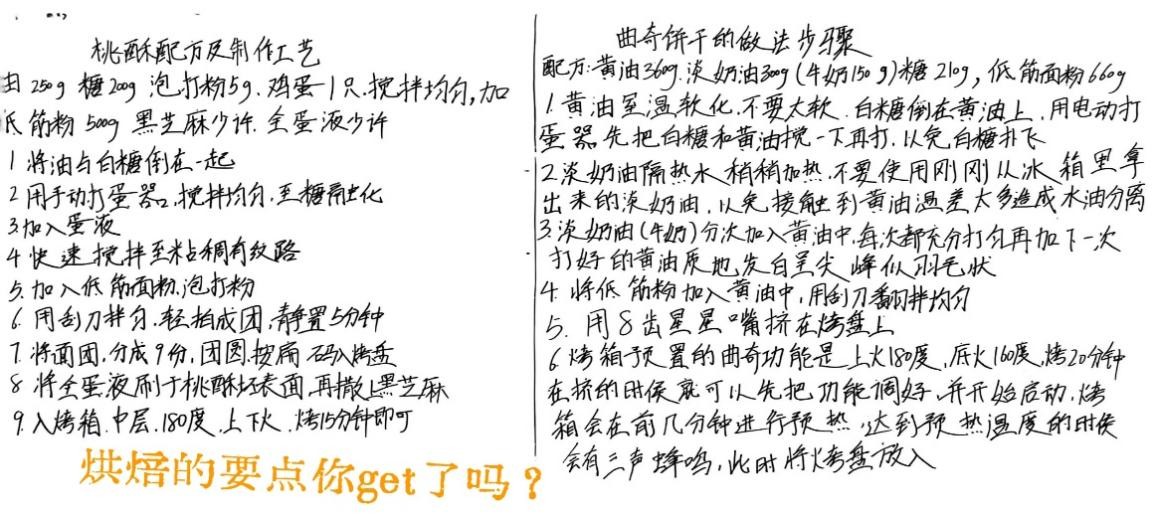 桃酥配方及制作工艺
250g 糖200g 泡打粉5g.鸡蛋1只.搅拌均匀,加
筋粉500g 黑芝麻少许.全蛋液少许
1 将油与白糖倒在一起
2 用手动打蛋器.搅拌均匀.至糖融化
3 加入蛋液
4 快速搅拌至粘稠有纹路
5.加入低筋面粉.泡打粉
6.用刮刀拌匀.轻拍成团,静置5分钟
7.将面团.分成9份,团圆.按扁 码入烤盘
8 将全蛋液刷于桃酥坯表面,再撒上黑芝麻
9.入烤箱.中层.180度.上下火.烤15分钟即可
曲奇饼干的做法步骤
配方:黄油360g.淡奶油300g(牛奶150g)糖210g,低筋面粉660g
1.黄油室温软化.不要太软.白糖倒在黄油上.用电动打
蛋器.先把白糖和黄油搅一下再打.以免白糖扑飞
2.淡奶油隔热水稍稍加热.不要使用刚刚从冰箱里拿
出来的淡奶油.以免接触到黄油温差太多造成水油分离
3.淡奶油(牛奶)分次加入黄油中.每次都充分打匀再加下一次
打好的黄油质地发白呈尖峰似羽毛状
4.将低筋粉加入黄油中,用刮刀翻拌均匀
5.用8齿星星嘴挤在烤盘上
6.烤箱预置的曲奇功能是上火180度.底火160度.烤20分钟
在挤的时候就可以先把功能调好.并开始启动.烤
箱会在前几分钟进行预热.达到预热温度的时候
会有三声蜂鸣,此时将烤盘放入
烘焙的要点你get了吗?